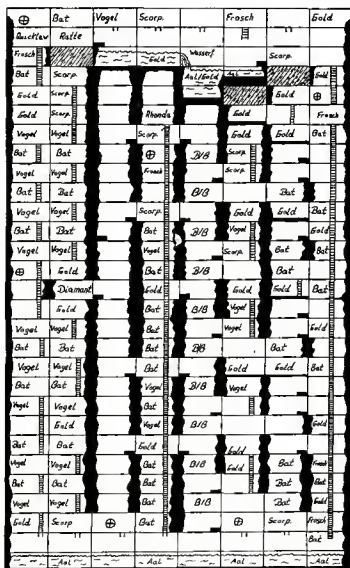 ⊕ Bat Vogel Scorp. Frosch Gold
Quicklaw Ratte
Frosch Gold Wasserf. Scorp.
Bat Scorp. Aal/Gold Aal Gold
Gold Scorp. Gold ⊕
Gold Scorp. Rhonda Gold Frosch
Vogel Vogel Scorp. Gold Gold Bat
Bat Bat ⊕ B/B Scorp.
Vogel Vogel Frosch Scorp.
Bat Bat B/B Bat
Vogel Vogel Scorp. Gold Gold Bat
Bat Bat Bat B/B Vogel Gold
Vogel Vogel Vogel Scorp. Bat Bat
⊕ Gold Bat B/B Bat
Diamant Gold Gold Gold Bat
Gold Bat B/B Vogel
Vogel Vogel Bat Vogel Gold
Bat Bat Bat B/B Bat
Vogel Vogel Bat Gold Gold Bat
Bat Bat Vogel B/B Vogel
Vogel Vogel Bat
Gold Vogel B/B Gold
Bat Bat Gold Gold
Vogel Vogel Bat B/B Gold Bat Frosch
Bat Bat Bat Bat Bat
Vogel Vogel Bat B/B Bat Gold
Gold Scorp ⊕ Bat ⊕ Scorp. Frosch
Bat
Aal Aal Aal Aal